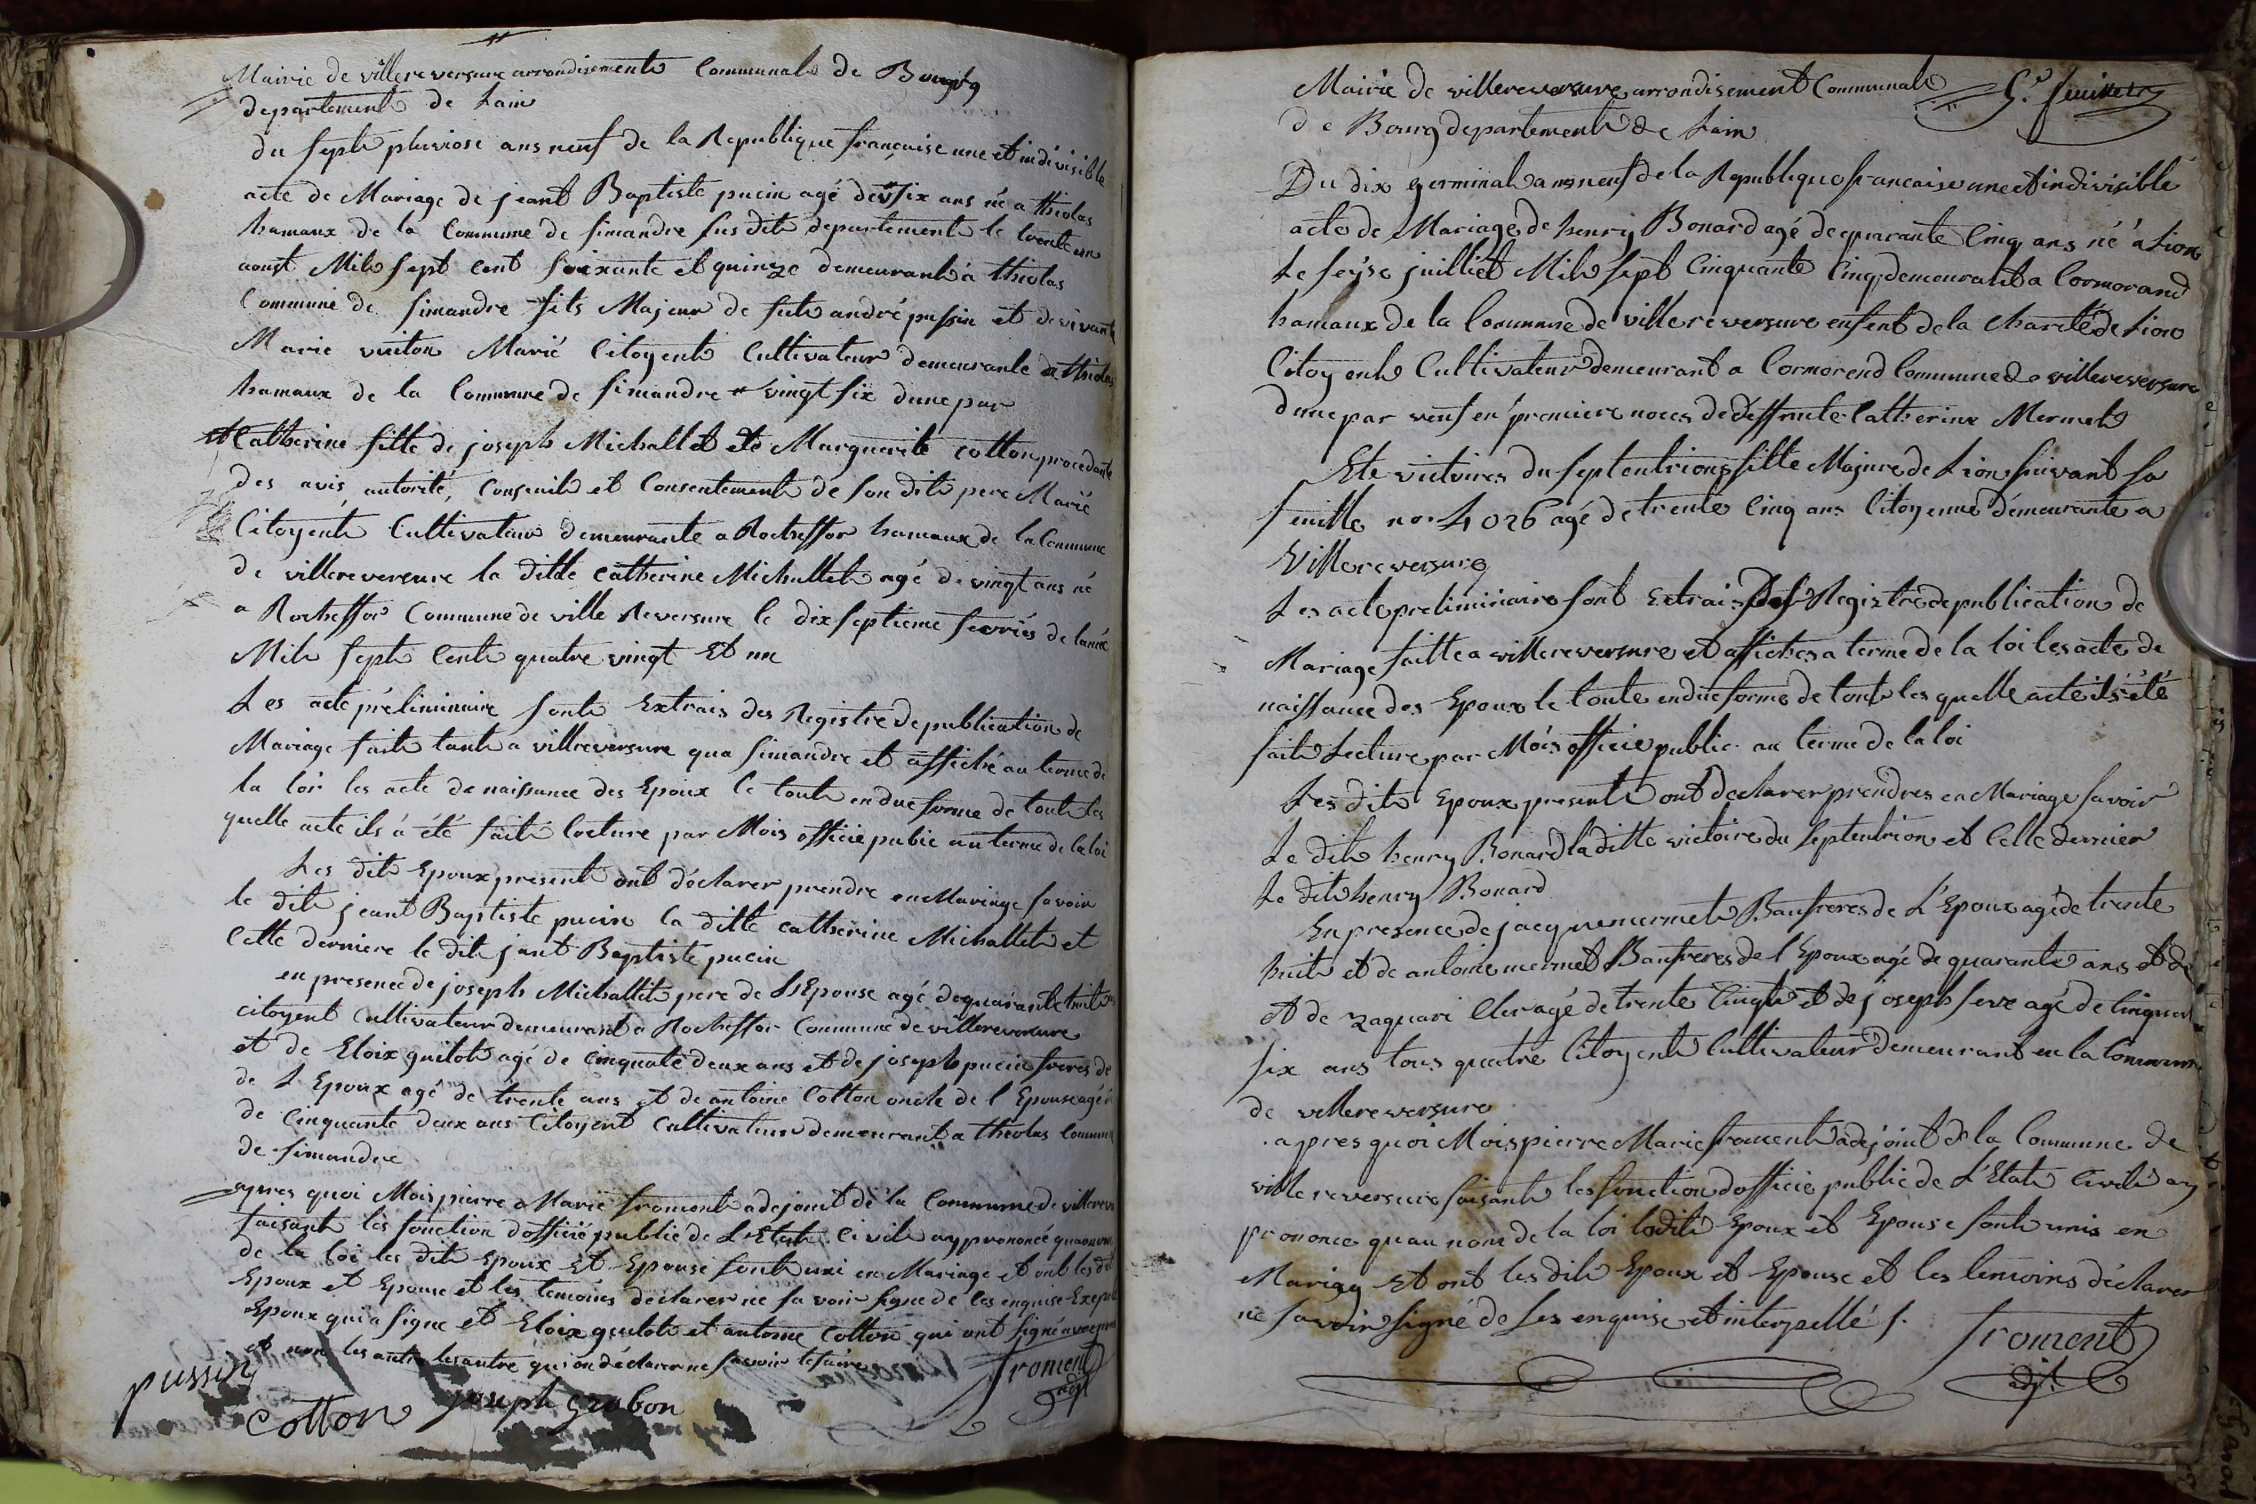 Mairie de villereversure arrondisements Communals de Bourg
departements de Lain
du septs pluviose ans neuf de la Republique française une et indivisible
acte de Mariage de jeant Baptiste pucin agé de six ans né a thiolas
hamaux de la Commune de simandre sus dits departements le trente un
aoust Mils sept cent soixante et quinze demeurants à thiolas
Commune de simandre fils Majeur de futs andré pussin et de vivante
Marie vuiton Marié Citoyents Cultivateur demeurante a thiolas
hamaux de la Commune de simandre vingt six dune par
et Catherine fille de joseph Michallet et de Marguerite cotton procedante
des avis autorité, Conseuils et Consentements de son dits pere Marié
Citoyents Cultivateur demeurante a Rocheffor hamaux de la Commune
de villereversure la ditte catherine Michallets agé de vingt ans né
a Rocheffor Commune de ville Reversure le dix septieme fevriés de lanné
Mils septs Cents quatre vingt Et un
Les acte préliminaire sonts Extrais des Registre de publication de
Mariage faits tants a villreversure qua simandre et affiché au terme de
la loi les acte de naissance des Epoux le touts en due forme de touts les
quelle acte ils a été faits lecture par Mois officié pubic au terme de la loi
Les dits Epoux presents onts déclarer prendre en Mariage savoir
le dits jeant Baptiste pucin la ditte catherine Michallets et
Cette derniere le dits jant Baptiste pucin
en presence de joseph Michallets pere de L'Epouse agé de quarante huit
citoyent Cultivateur demeurant a Rocheffor Commune de villereversure
et de Eloix guilots agé de cinquate deux ans et de joseph pucin freres de
de L'Epoux agé de trente ans et de antoine Cotton oncle de l'Epouse agé
de Cinquante deux ans Citoyent Cultivateur demeurant a thiolas Commune
de simandre
apres quoi Mois pierre Marie froments adejoint de la Commune de villerev
faisant les fonction d'officié public de L'Etats Civils ay prononcé quaunom
de la loi les dits Epoux Et Epouse sonts uni en Mariage et ont les dit
Epoux et Epouse et les temoins declarer ne savoir signe de les enquise Exept
Epoux qui a signe et Eloix guilots et antoine Cotton qui ont signé
et non les autre les autre qui on déclarer ne savoir le faire
pussin froment
adjt
cotton joseph grabon
Mairie de villereversure arrondisement Communals
de Bourg departements de Lain
Du dix germinal ans neuf de la Republique francaise une et indivisible
acte de Mariage de henry Bonard agé de quarante Cinq ans né a Lion
Le seyse juilliet Mils sept Cinquante Cinq demeurant a Cormorand
hamaux de la Commune de villereversure enfent de la charité de Lion
Citoyents Cultivateur demeurant a Cormorend Commune de villereversure
dune par veuf en premiere noces de deffunte Catherine Mermets
Ete victoires du septentrions fille Majure de Lion suivant sa
feuille no. 4026 agé de trente Cinq ans Citoyenne demeurante a
villereversure
Les acte preliminaire sont extrais Des Registre de publication de
Mariage faitte a villereversure et affiches a terme de la loi les acte de
naissance des Epoux le toute en due forme de touts les quelle acte ils été
faits Lecture par Mois officié public au terme de la loi
Les dits Epoux presents ont declarer prendres en Mariage savoir
Le dits henry Bonard la ditte victoire du septentrion et Celle dernier
Le dits henry Bonard
En presence de jacque mermets Baufreres de L'Epoux agé de trente
huits et de antoine mermet Baufreres de l'Epoux agé de quarante ans et de
et de zaquari Cler agé de trente Cinqts et de joseph serve agé de Cinquant
six ans tous quatre Citoyents Cultivateur demeurant en la Commune
de villereversure
apres quoi Mois pierre Marie froments adejoint de la Commune de
villereversure faisants les fonction dofficié public de L'Etats Civils ay
prononce quau nom de la loi ledits Epoux et Epouse sonts unis en
Mariag Et ont les dits Epoux et Epouse et les temoins déclarer
ne savoir signé de les enquise et interpellé s.
froment
adjt